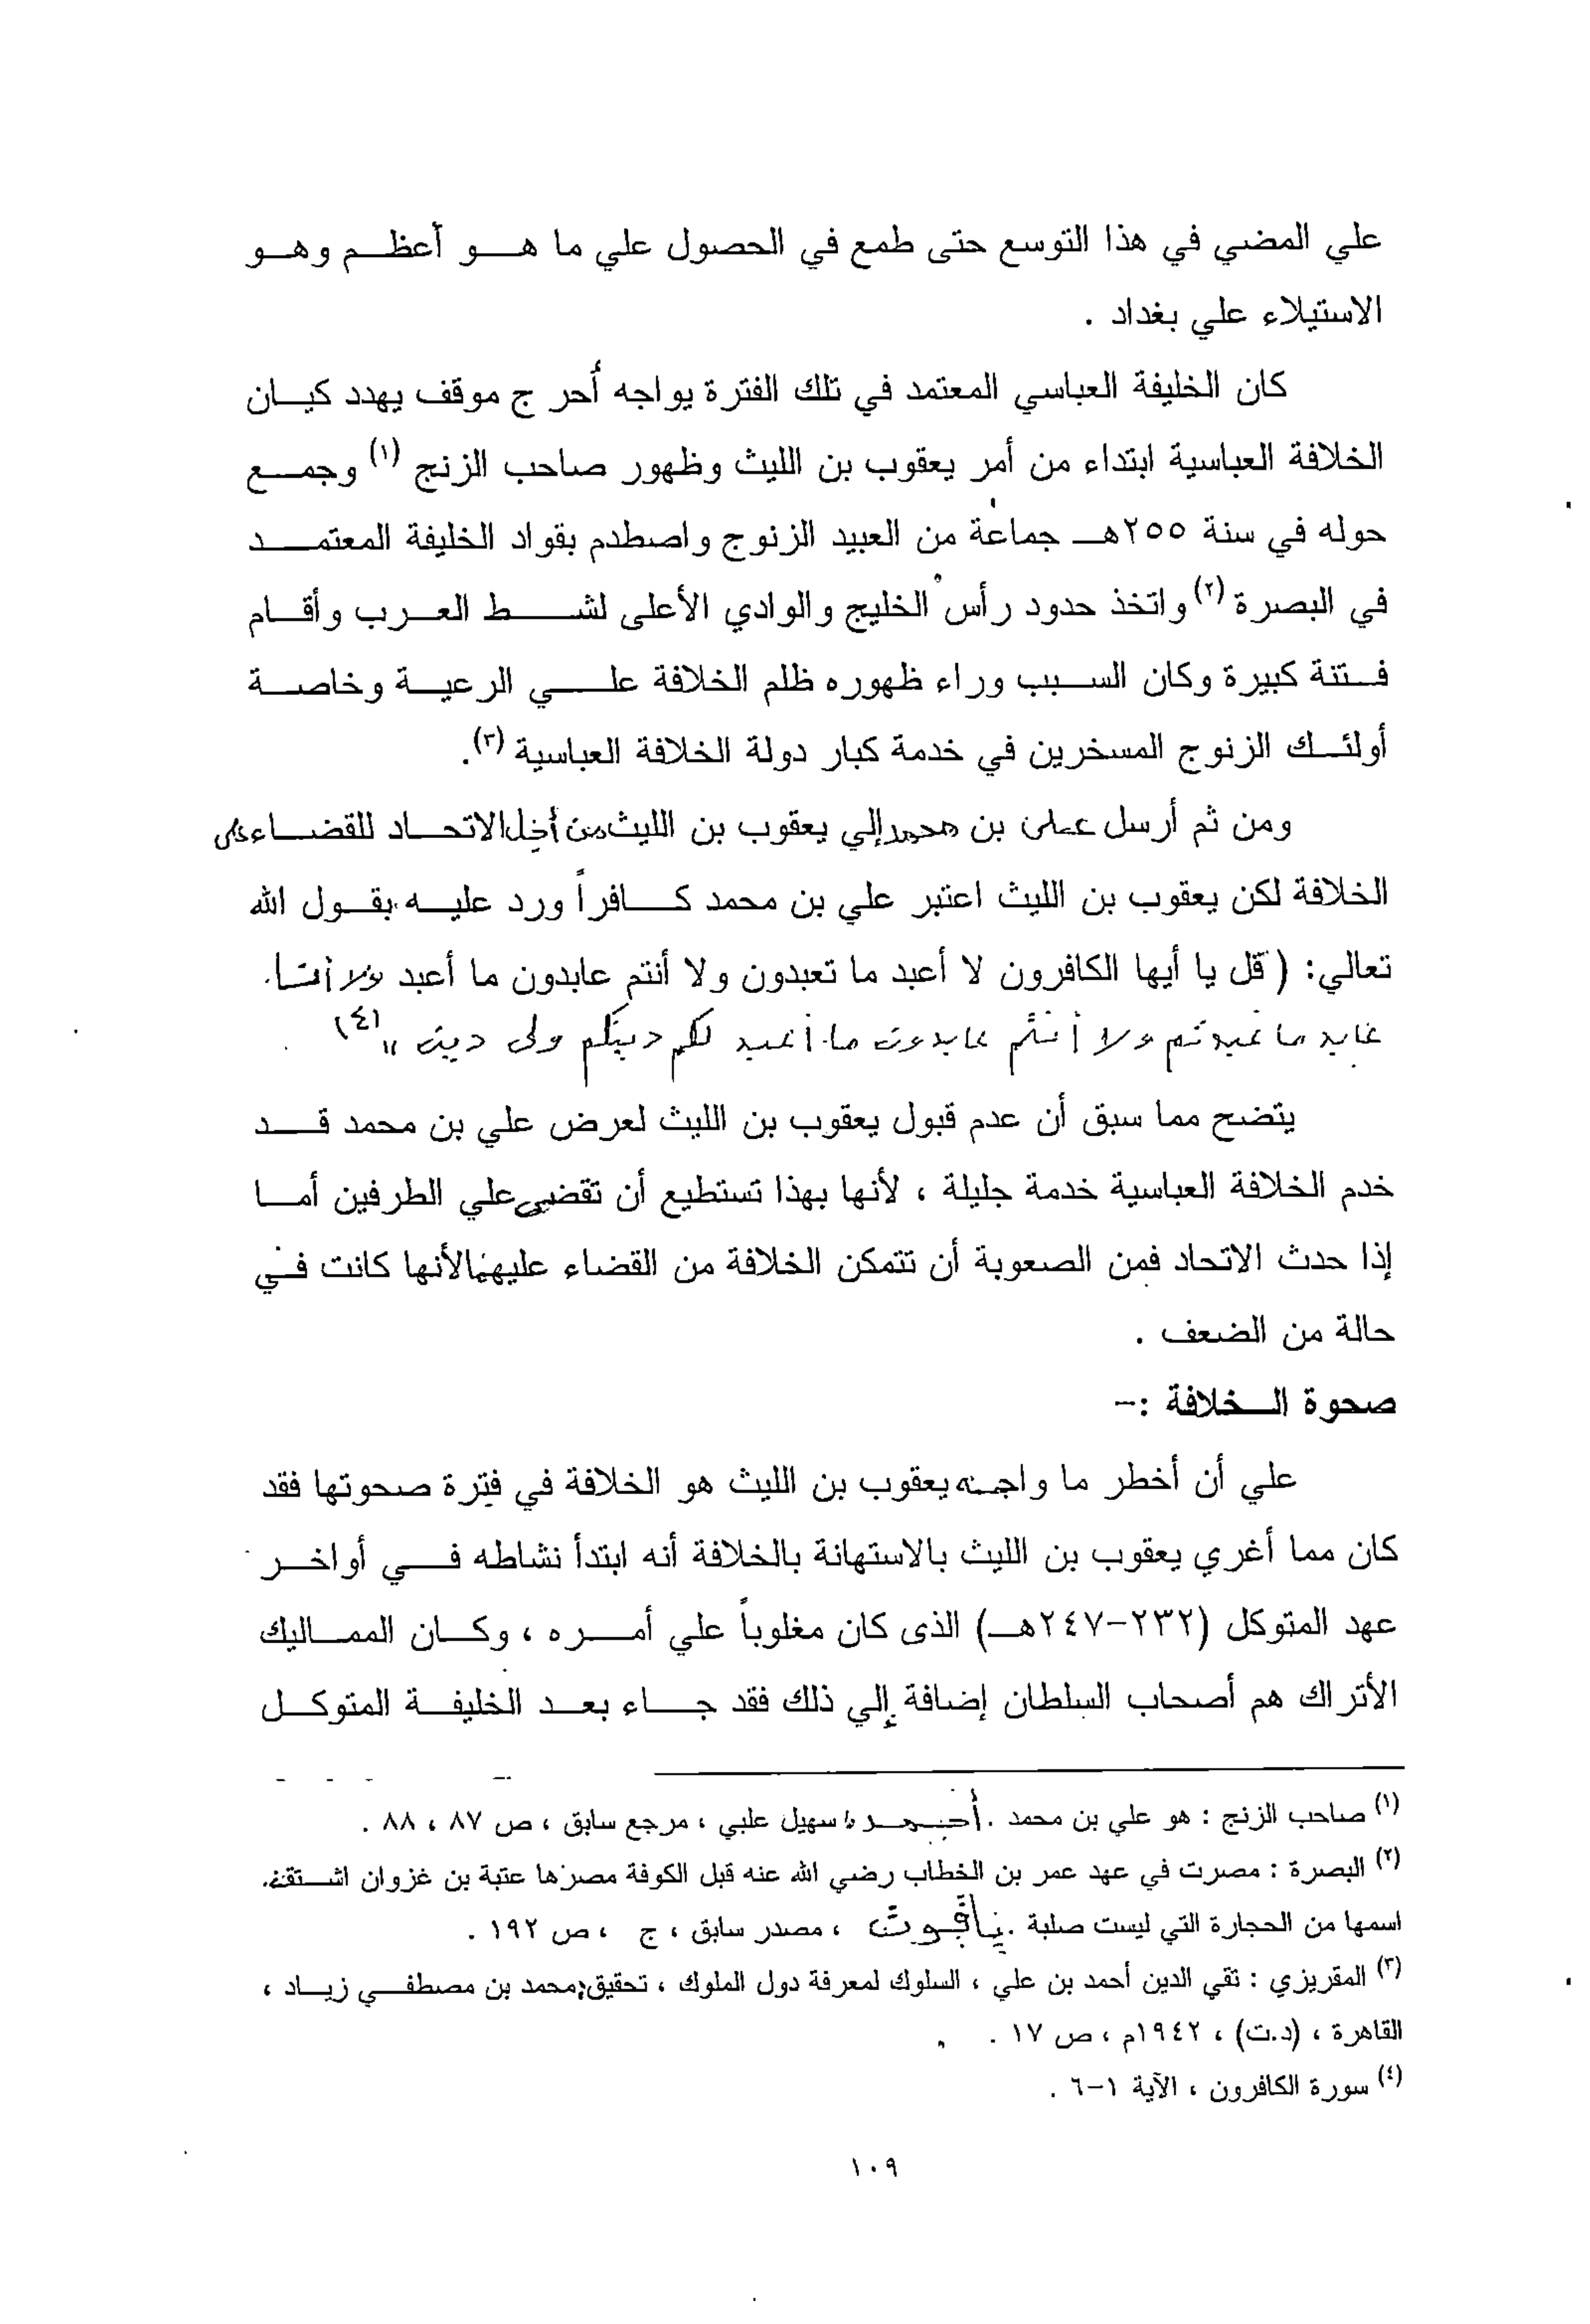 علي المضي في هذا التوسع حتى طمع في الحصول علي ما هو أعظم وهو
الاستيلاء علي بغداد .
كان الخليفة العباسي المعتمد في تلك الفترة يواجه أحرج موقف يهدد كيان
الخلافة العباسية ابتداء من أمر يعقوب بن الليث وظهور صاحب الزنج (١) وجمع
حوله في سنة ٢٥٥هـ جماعة من العبيد الزنوج واصطدم بقواد الخليفة المعتمد
في البصرة (٢) واتخذ حدود رأس الخليج والوادي الأعلى لشط العرب وأقام
فتنة كبيرة وكان السبب وراء ظهوره ظلم الخلافة علي الرعية وخاصة
أولئك الزنوج المسخرين في خدمة كبار دولة الخلافة العباسية (٣).
ومن ثم أرسل على بن محمد إلي يعقوب بن الليث من أجل الاتحاد للقضاء على
الخلافة لكن يعقوب بن الليث اعتبر علي بن محمد كافراً ورد عليه بقول الله
تعالي: ( قل يا أيها الكافرون لا أعبد ما تعبدون ولا أنتم عابدون ما أعبد ولا أنا
عابد ما عبدتم ولا أنتم عابدون ما أعبد لكم دينكم ولى دين " (٤)
يتضح مما سبق أن عدم قبول يعقوب بن الليث لعرض علي بن محمد قد
خدم الخلافة العباسية خدمة جليلة ، لأنها بهذا تستطيع أن تقضي علي الطرفين أما
إذا حدث الاتحاد فمن الصعوبة أن تتمكن الخلافة من القضاء عليهما لأنها كانت في
حالة من الضعف .
صحوة الخلافة :-
علي أن أخطر ما واجه يعقوب بن الليث هو الخلافة في فترة صحوتها فقد
كان مما أغري يعقوب بن الليث بالاستهانة بالخلافة أنه ابتدأ نشاطه في أواخر
عهد المتوكل (٢٣٢-٢٤٧هـ) الذى كان مغلوباً علي أمره ، وكان المماليك
الأتراك هم أصحاب السلطان إضافة إلي ذلك فقد جاء بعد الخليفة المتوكل
(١) صاحب الزنج : هو علي بن محمد . أحمد سهيل علبي ، مرجع سابق ، ص ٨٧ ، ٨٨ .
(٢) البصرة : مصرت في عهد عمر بن الخطاب رضي الله عنه قبل الكوفة مصرها عتبة بن غزوان اشتقت
اسمها من الحجارة التي ليست صلبة . ياقوت ، مصدر سابق ، ج ، ص ١٩٢ .
(٣) المقريزي : تقي الدين أحمد بن علي ، السلوك لمعرفة دول الملوك ، تحقيق: محمد بن مصطفي زياد ،
القاهرة ، (د.ت) ، ١٩٤٢م ، ص ١٧ .
(٤) سورة الكافرون ، الآية ١-٦ .
١٠٩